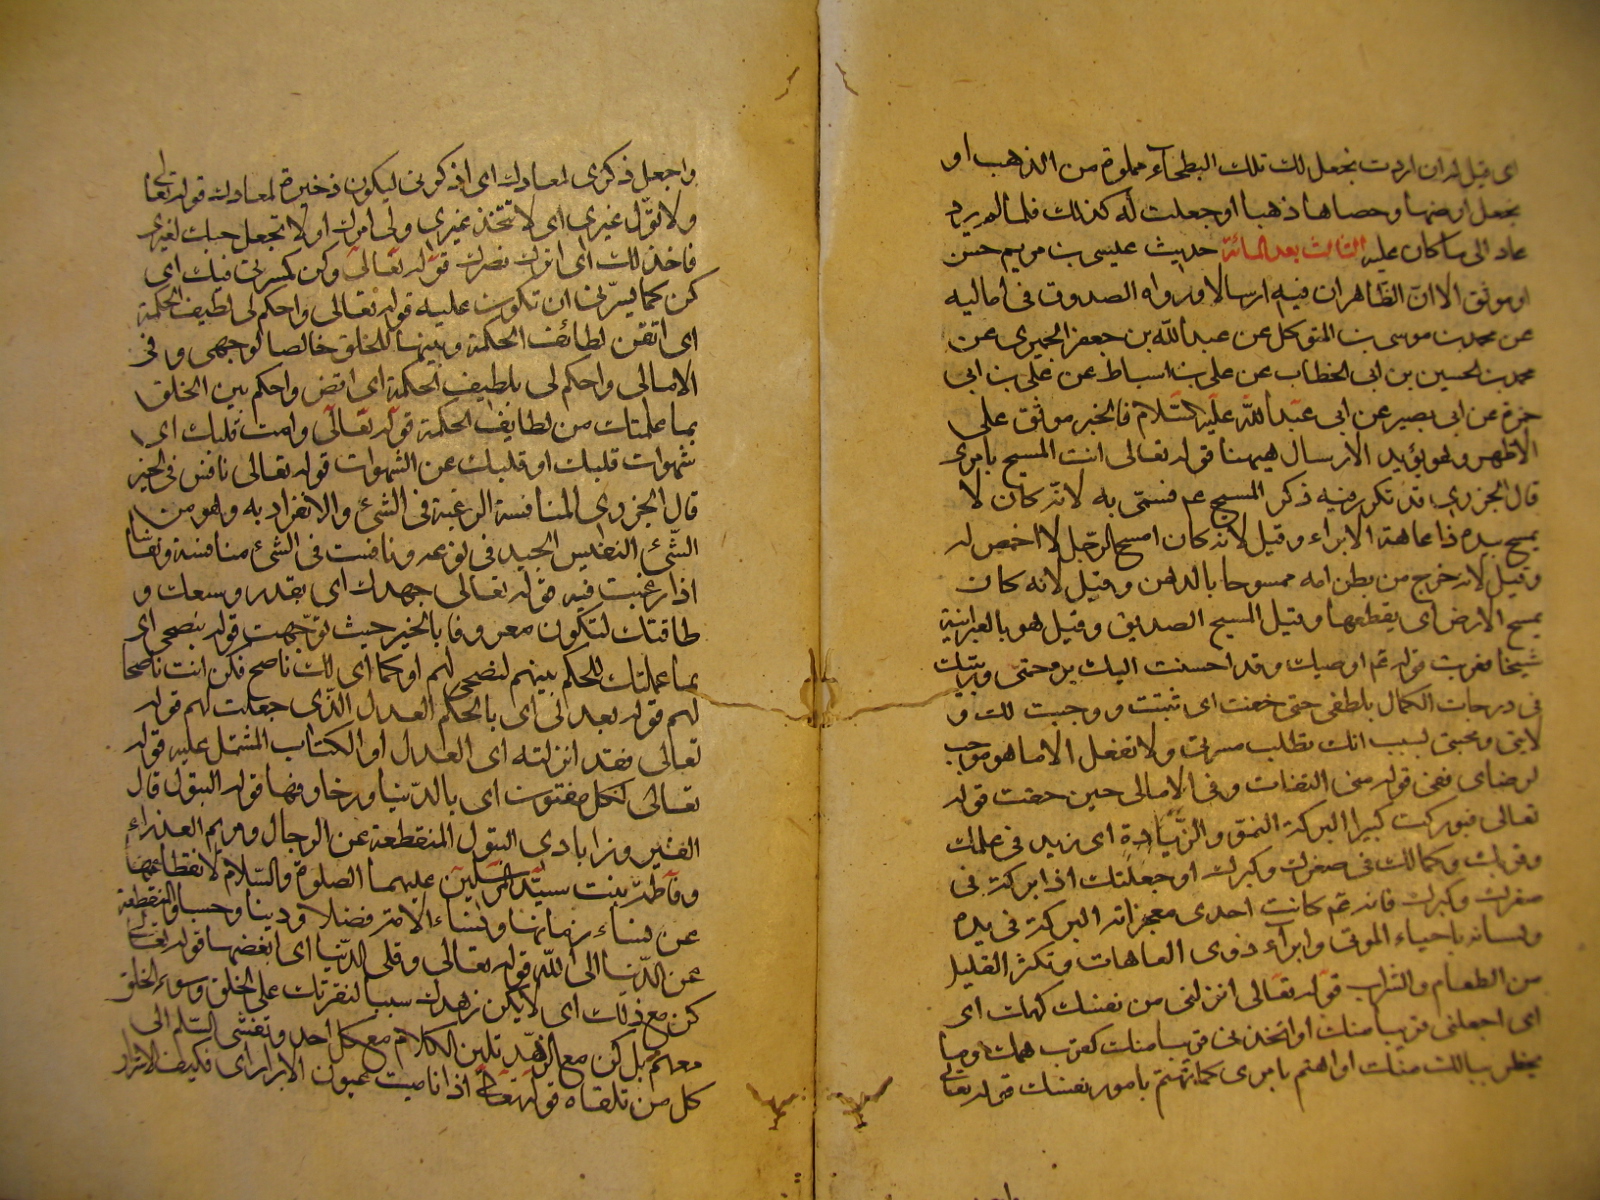 اى قيل له ان اردت نجعل لك تلك البطحاء مملوة من الذهب او
نجعل ارضها وحصاها ذهبا او جعلت له كذلك فلما لم يرد
عاد الى ما كان عليه الثالث بعد المائة حديث عيسى بن مريم حسن
او موثق الا ان الظاهر ان فيه ارسالا ورواه الصدوق فى اماليه
عن محمد بن موسى بن المتوكل عن عبد الله بن جعفر الحميرى عن
محمد بن الحسين بن ابى الخطاب عن على بن اسباط عن على بن ابى
حمزة عن ابى بصير عن ابى عبد الله عليه السلام فالخبر موثق على
الاظهر وهو يؤيد الارسال هيهنا قوله تعالى انت المسيح بامرى
قال الجزرى قد تكرر فيه ذكر المسيح عم فسمى به لانه كان لا
يمسح بيده ذا عاهة الا برء وقيل لانه كان امسح الرجل لا اخمص له
وقيل لانه خرج من بطن امه ممسوحا بالدهن وقيل لانه كان
يمسح الارض اى يقطعها وقيل المسيح الصديق وقيل هو بالعبرانية
شيخا فعرب قوله ثم اوصيك وقد احسنت اليك برحمتى وربيتك
فى درجات الكمال بلطفى حتى حقت اى ثبتت ووجبت لك و
لايتى ومحبتى بسبب انك تطلب مسرتى ولا تفعل الا ما هو موجب
لرضاى فمن قوله منى التفات وفى الامالى حين حقت قوله
تعالى فبوركت كبيرا البركة النمو والزيادة اى زيد فى علمك
وقربك وكمالك فى صغرك وكبرك او جعلتك ذا بركة فى
صغرك وكبرك فانه عم كانت احدى معجزاته البركة فى يده
ولسانه باحياء الموتى وابراء ذوى العاهات وتكثر القليل
من الطعام والشراب قوله تعالى انزلنى من نفسك كهمك اى
اى اجعلنى قريبا منك او اتخذنى قريبا منك كقرب همك وما
يخطر ببالك منك او اهتم بامرى كما تهتم بامور نفسك قوله تعالى
واجعل ذكرى لمعادك اى اذكرنى ليكون ذخيرة لمعادك قوله تعالى
ولا تولّ غيرى اى لا تتخذ غيرى ولى امرك او لا تجعل حبك لغيرى
فاخذلك اى اترك نصرك قوله تعالى وكن كمسرتى فيك اى
كن كما يسرّنى ان تكون عليه قوله تعالى واحكم لى لطيف الحكمة
اى اتقن لطائف الحكمة وبينها للخلق خالصا لوجهى وفى
الامالى واحكم لى بلطيف الحكمة اى اقض واحكم بين الخلق
بما علمتك من لطايف الحكمة قوله تعالى وامت قلبك اى
شهوات قلبك او قلبك عن الشهوات قوله تعالى نافس فى الخير
قال الجزرى المنافسة الرغبة فى الشئ والانفراد به وهو من
الشئ النفيس الجيد فى نوعه ونافست فى الشئ منافسة ونفاسا
اذا رغبت فيه قوله تعالى جهدك اى بقدر وسعك و
طاقتك لتكون معروفا بالخير حيث توجهت قوله بنصحى اى
بما علمتك للحكم بينهم لنصحى لهم او كما اى لك ناصح فكن انت ناصحا
لهم قوله بعدلى اى بالحكم العدل الذى جعلت لهم قوله
تعالى فقد انزلته اى العدل او الكتاب المشتمل عليه قوله
تعالى لكل مفتون اى بالدنيا وزخارفها قوله البتول قال
الفيروزابادى البتول المنقطعة عن الرجال ومريم العذراء
وفاطمة بنت سيد المرسلين عليهما الصلوة والسلام لانقطاعها
عن نساء زمانها ونساء الامة فضلا ودينا وحسبا والمنقطعة
عن الدنيا الى الله قوله تعالى وقلى الدنيا اى ابغضها قوله تعالى
كن مع ذلك اى لا يكن زهدك سببا لنفرتك على الخلق وسوء الخلق
معهم بل كن مع الزهد تلين الكلام مع كل احد وتفشى السلم الى
كل من تلقاه قوله تعالى اذا نامت عيون الابرار اى فكيف الاشرار